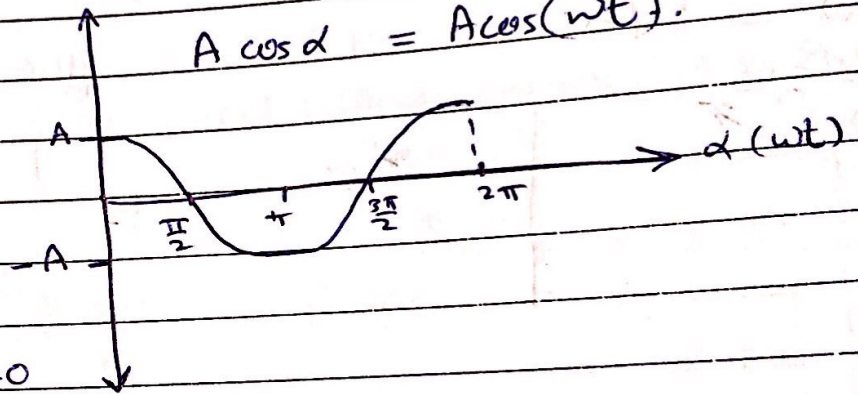 A cos α = A cos(ωt).
A
α (ωt)
π/2
π
3π/2
2π
-A
0